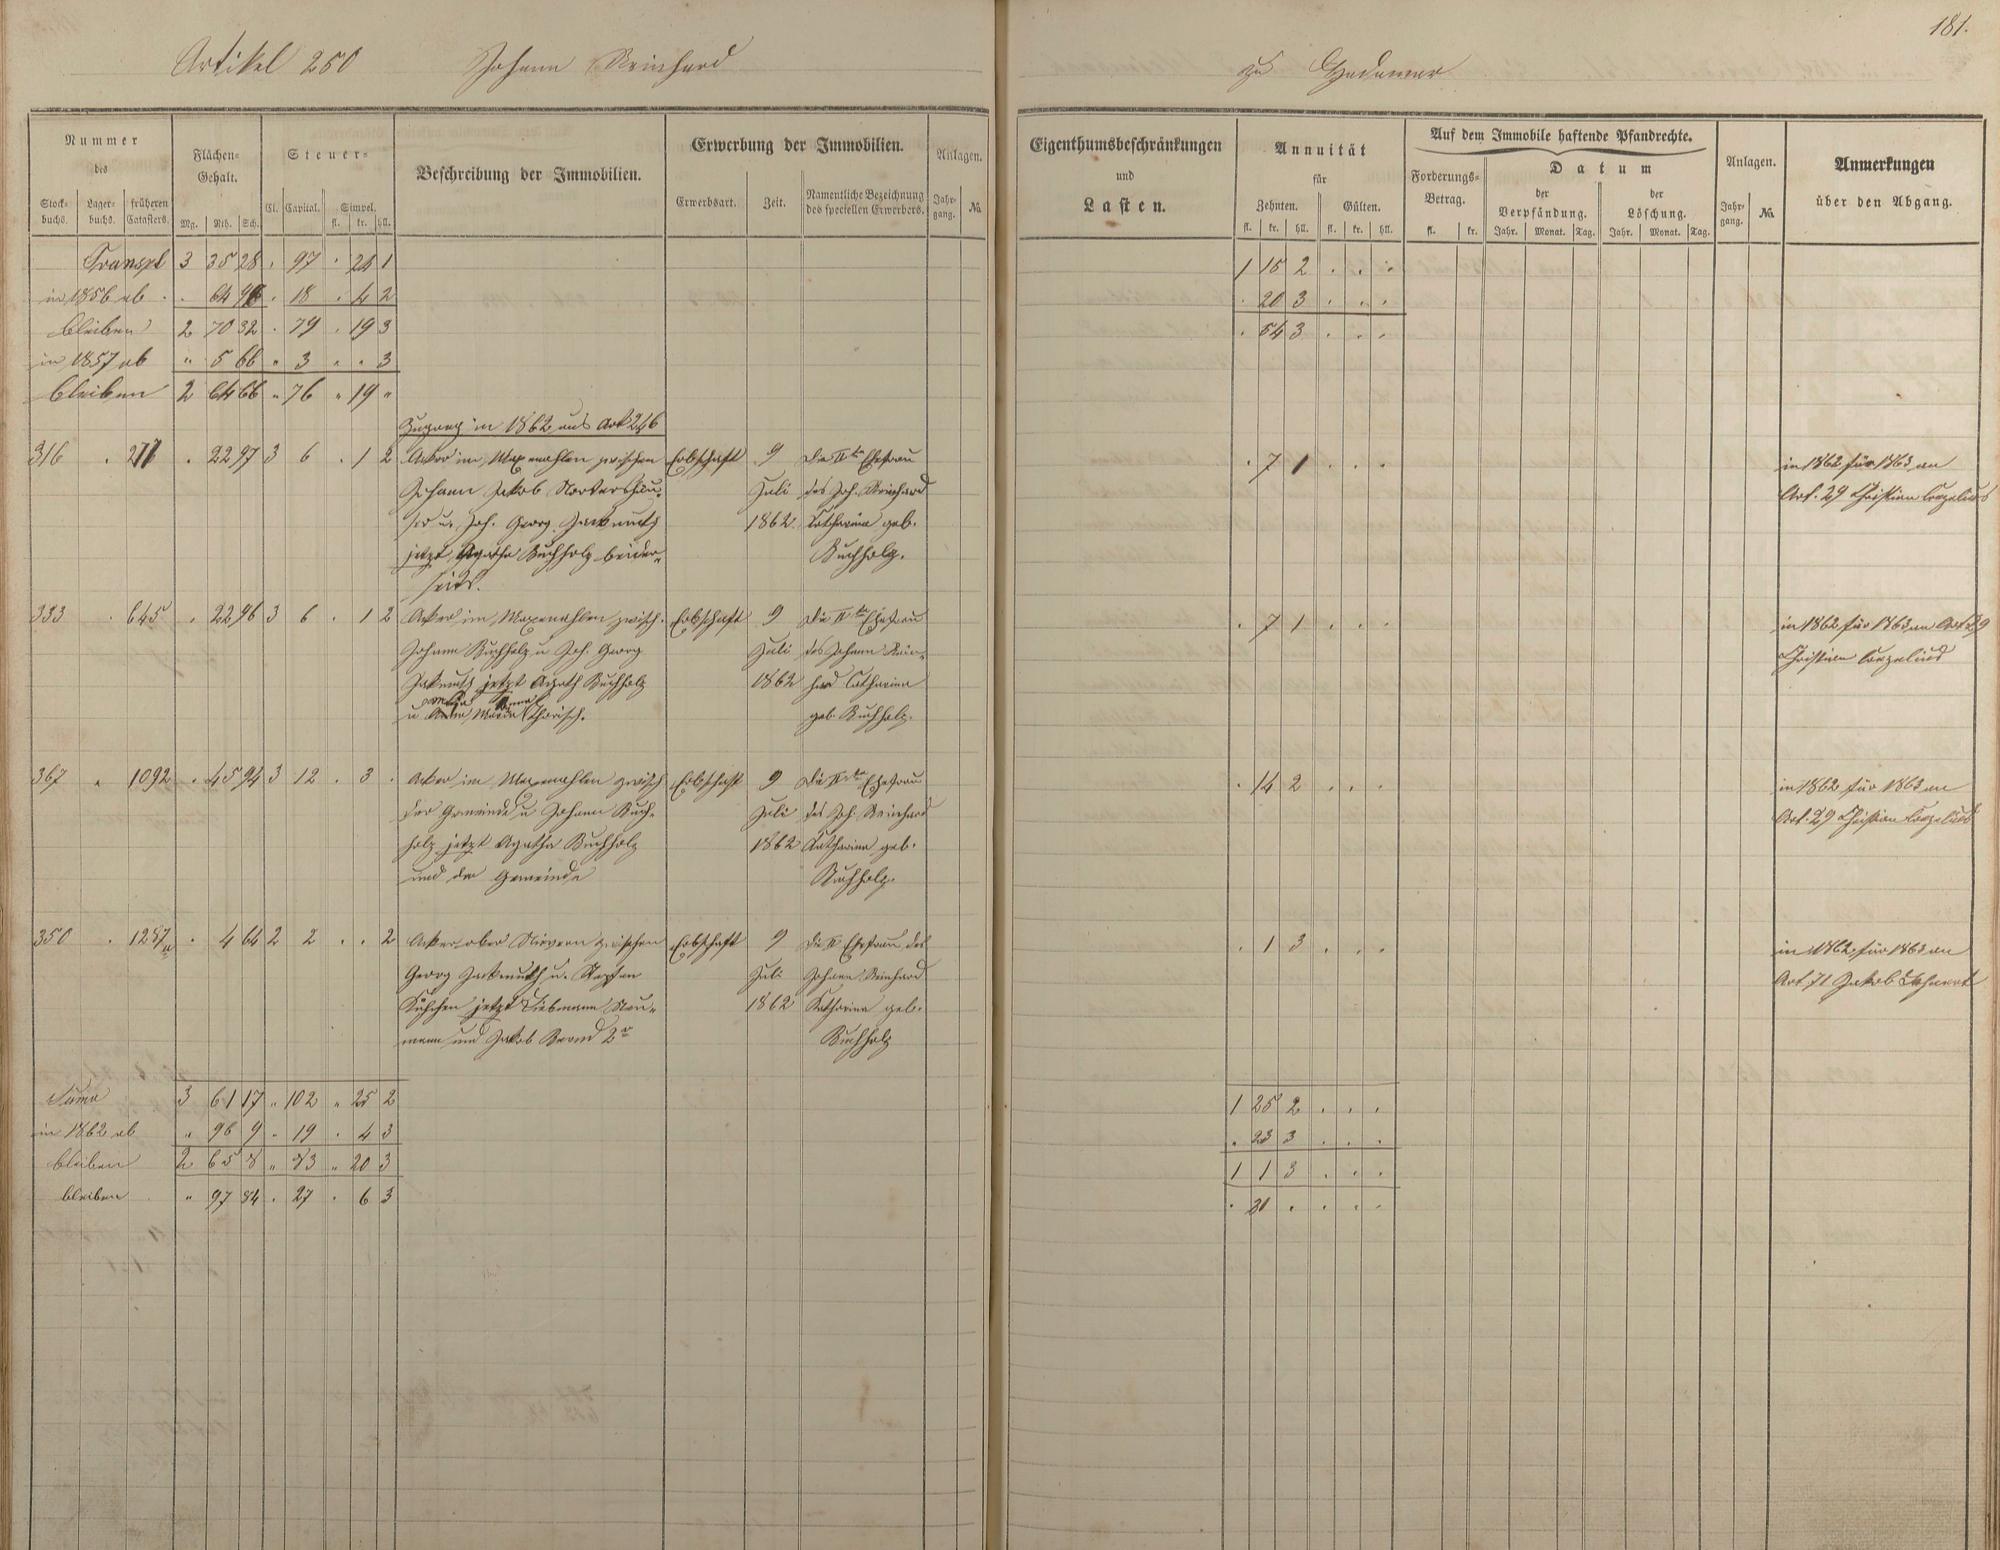 181.
Artikel 250 Johann Reinhard zu Hadamar
Nummer des
Stock-buchs. Lager-buchs. früheren Catasters.
Flächen-Gehalt.
Mg. Rth. Sch.
Steuer-
Cl. Capital. Simpel.
fl. kr. hll.
Beschreibung der Immobilien.
Erwerbung der Immobilien.
Erwerbsart. Zeit. Namentliche Bezeichnung des speciellen Erwerbers.
Anlagen.
Jahr-gang. No.
Eigenthumsbeschränkungen
und
Lasten.
Annuität
für
Zehnten. Gülten.
fl. kr. hll. fl. kr. hll.
Auf dem Immobile haftende Pfandrechte.
Forderungs-Betrag.
fl. kr.
Datum
der Verpfändung. der Löschung.
Jahr. Monat. Tag. Jahr. Monat. Tag.
Anlagen.
Jahr-gang. No.
Anmerkungen
über den Abgang.
Transpt 3 35 28 . 97 . 24 1 1 15 2 . . .
in 1856 ab . . 64 96 . 18 . 4 2 . 20 3 . . .
bleiben 2 70 32 . 79 . 19 3 . 54 3 . . .
in 1857 ab " 5 66 " 3 " " 3
bleiben 2 64 66 " 76 " 19 "
Zugang in 1862 aus Art 246
316 . 277 . 22 97 3 6 . 1 2 Acker im zwischen Erbschaft 9 Die IIte Ehefrau . 7 1 . . . in 1862 für 1863 an
Johann Jakob Juli des Joh. Reinhard Art. 29 Christian Corzelius
u. Joh. Georg Jackmuth 1862 Catharina geb.
jetzt Agatha Buchholz beider- Buchholz.
seits.
333 . 645 . 22 96 3 6 . 1 2 Acker im zwisch. Erbschaft 9 Die IIte Ehefrau . 7 1 . . . in 1862 für 1863 an Art 29
Johann Buchholz u Joh. Georg Juli des Johann Rein- Christian Corzelius
Jakmuth jetzt Agath Buchholz 1862 hard Catharina
u geb. Buchholz.
367 " 1092 . 45 94 3 12 . 3 . Acker im zwisch Erbschaft 9 Die IIte Ehefrau . 14 2 . . . in 1862 für 1863 an
der Gemeinde u Johann Buch- Juli des Joh. Reinhard Art. 29 Christian Corzelius
holz jetzt Agatha Buchholz 1862 Catharina geb.
und der Gemeinde Buchholz.
350 . 1287 a . 4 64 2 2 . . 2 Acker ober zwischen Erbschaft 9 Die II Ehefrau des . 1 3 . . . in 1862 für 1863 an
Georg Jackmuth u. Juli Johann Reinhard Art 71 Jakob
jetzt Liebmann Neu- 1862 Katharina geb.
mann und Jakob 2r Buchholz
Suma 3 61 17 " 102 " 25 2 1 25 2 . . .
in 1862 ab " 96 9 " 19 . 4 3 . 23 3 . . .
bleiben 2 65 8 " 83 " 20 3 1 1 3 . . .
bleiben " 97 34 . 27 . 6 3 . 21 . . . .